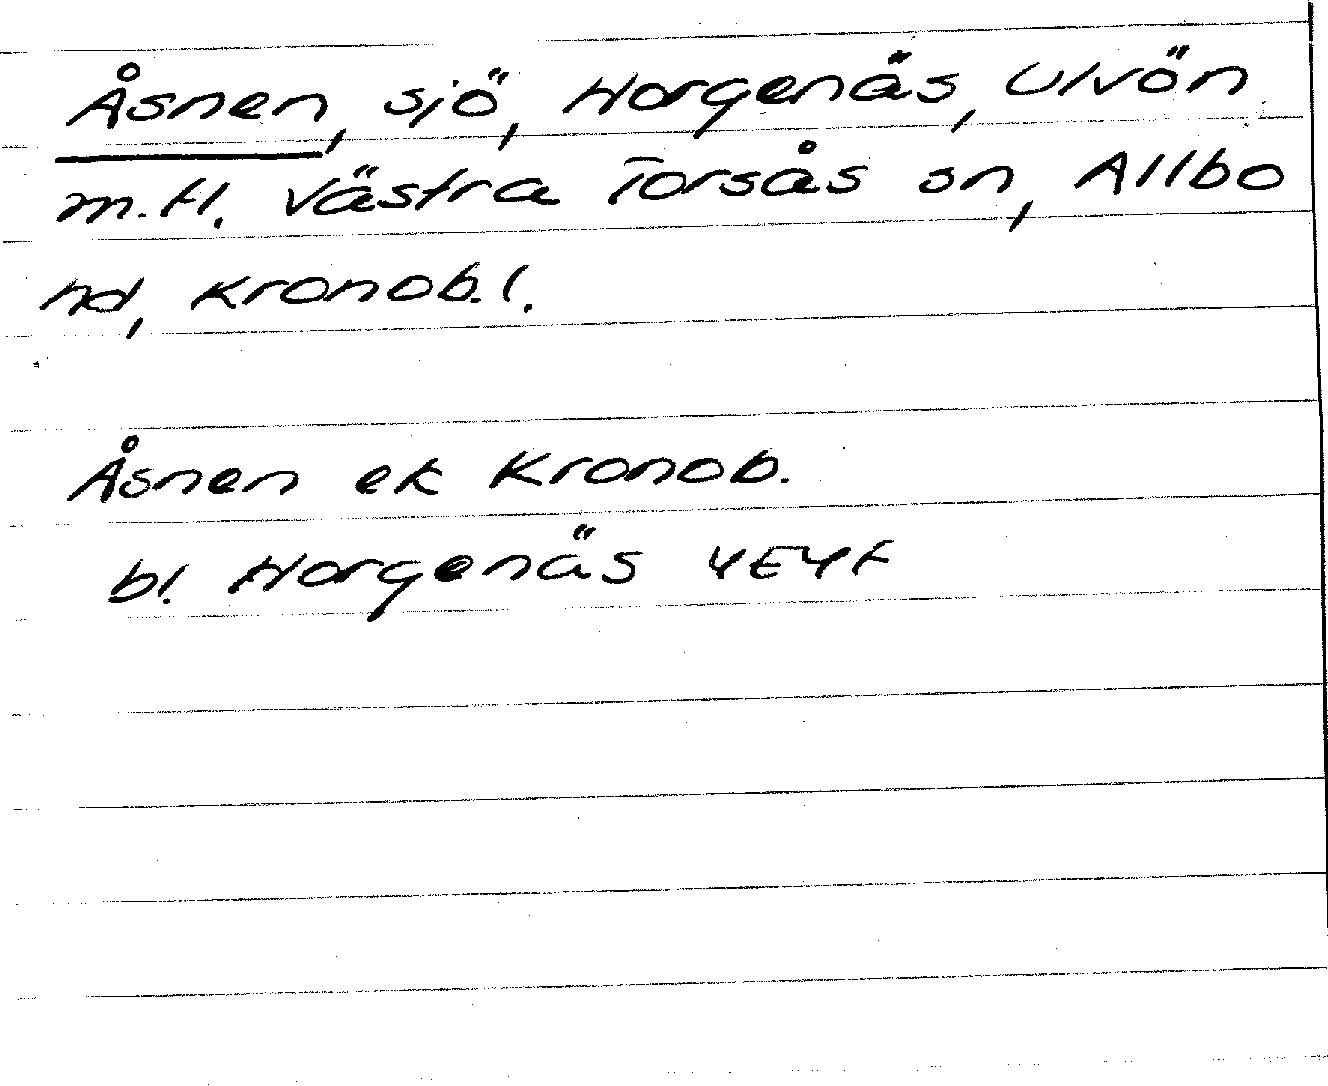 Åsnen, sjö, Horgenäs, Ulvön
m.fl. Västra Torsås sn, Allbo
hd, Kronob. l.
Åsnen ek Kronob.
bl. Horgenäs 4E4f